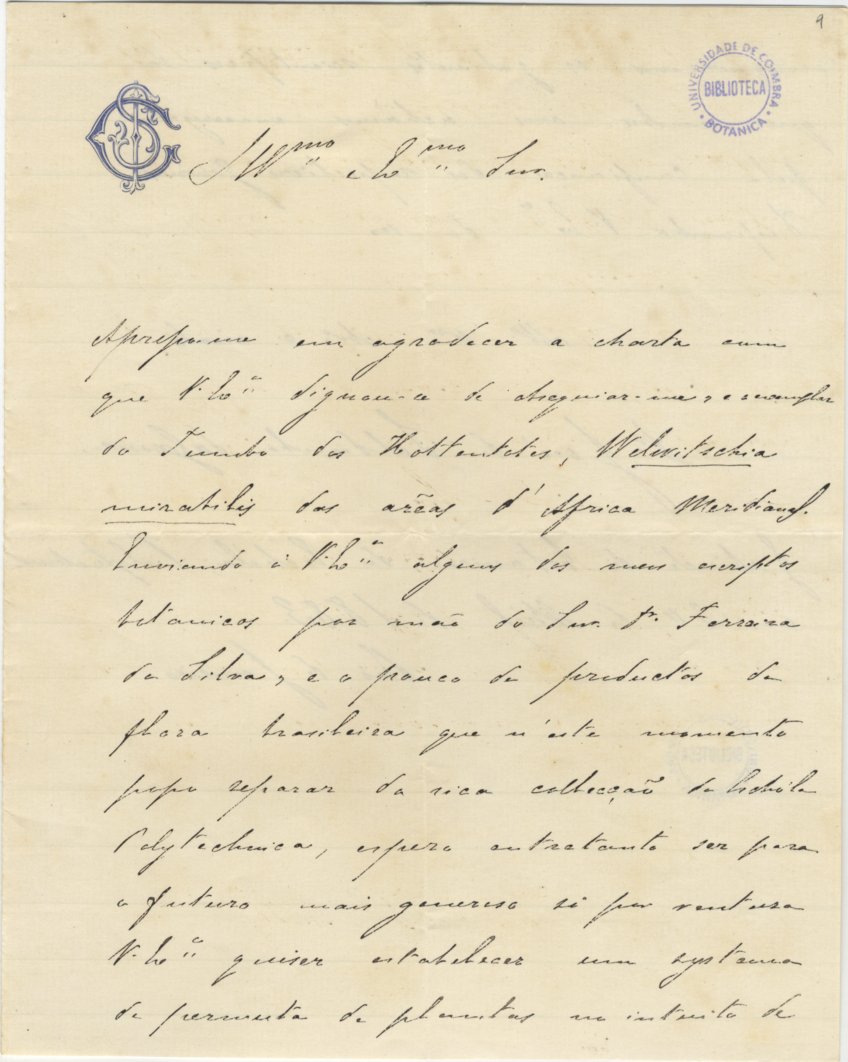 9
UNIVERSIDADE DE COIMBRA
BIBLIOTECA
BOTANICA
Illmo e Exmo Snr.
Apresso-me em agradecer a charta com
que V. Exa dignou-se de obsequiar-me, e o exemplar
do Tumbo dos Hottentotes, Welwitschia
mirabilis das arêas d'Africa Meridional.
Enviando á V. Exa alguns dos meus escriptos
botanicos por mão do Snr. Dr. Ferreira
da Silva, e o pouco de productos da
flora brasileira que n'este momento
posso separar da rica collecção da Eschóla
Polytechnica, espero entretanto ser para
o futuro mais generoso si por ventura
V. Exa quiser estabelecer um systema
de permuta de plantas no intuito de